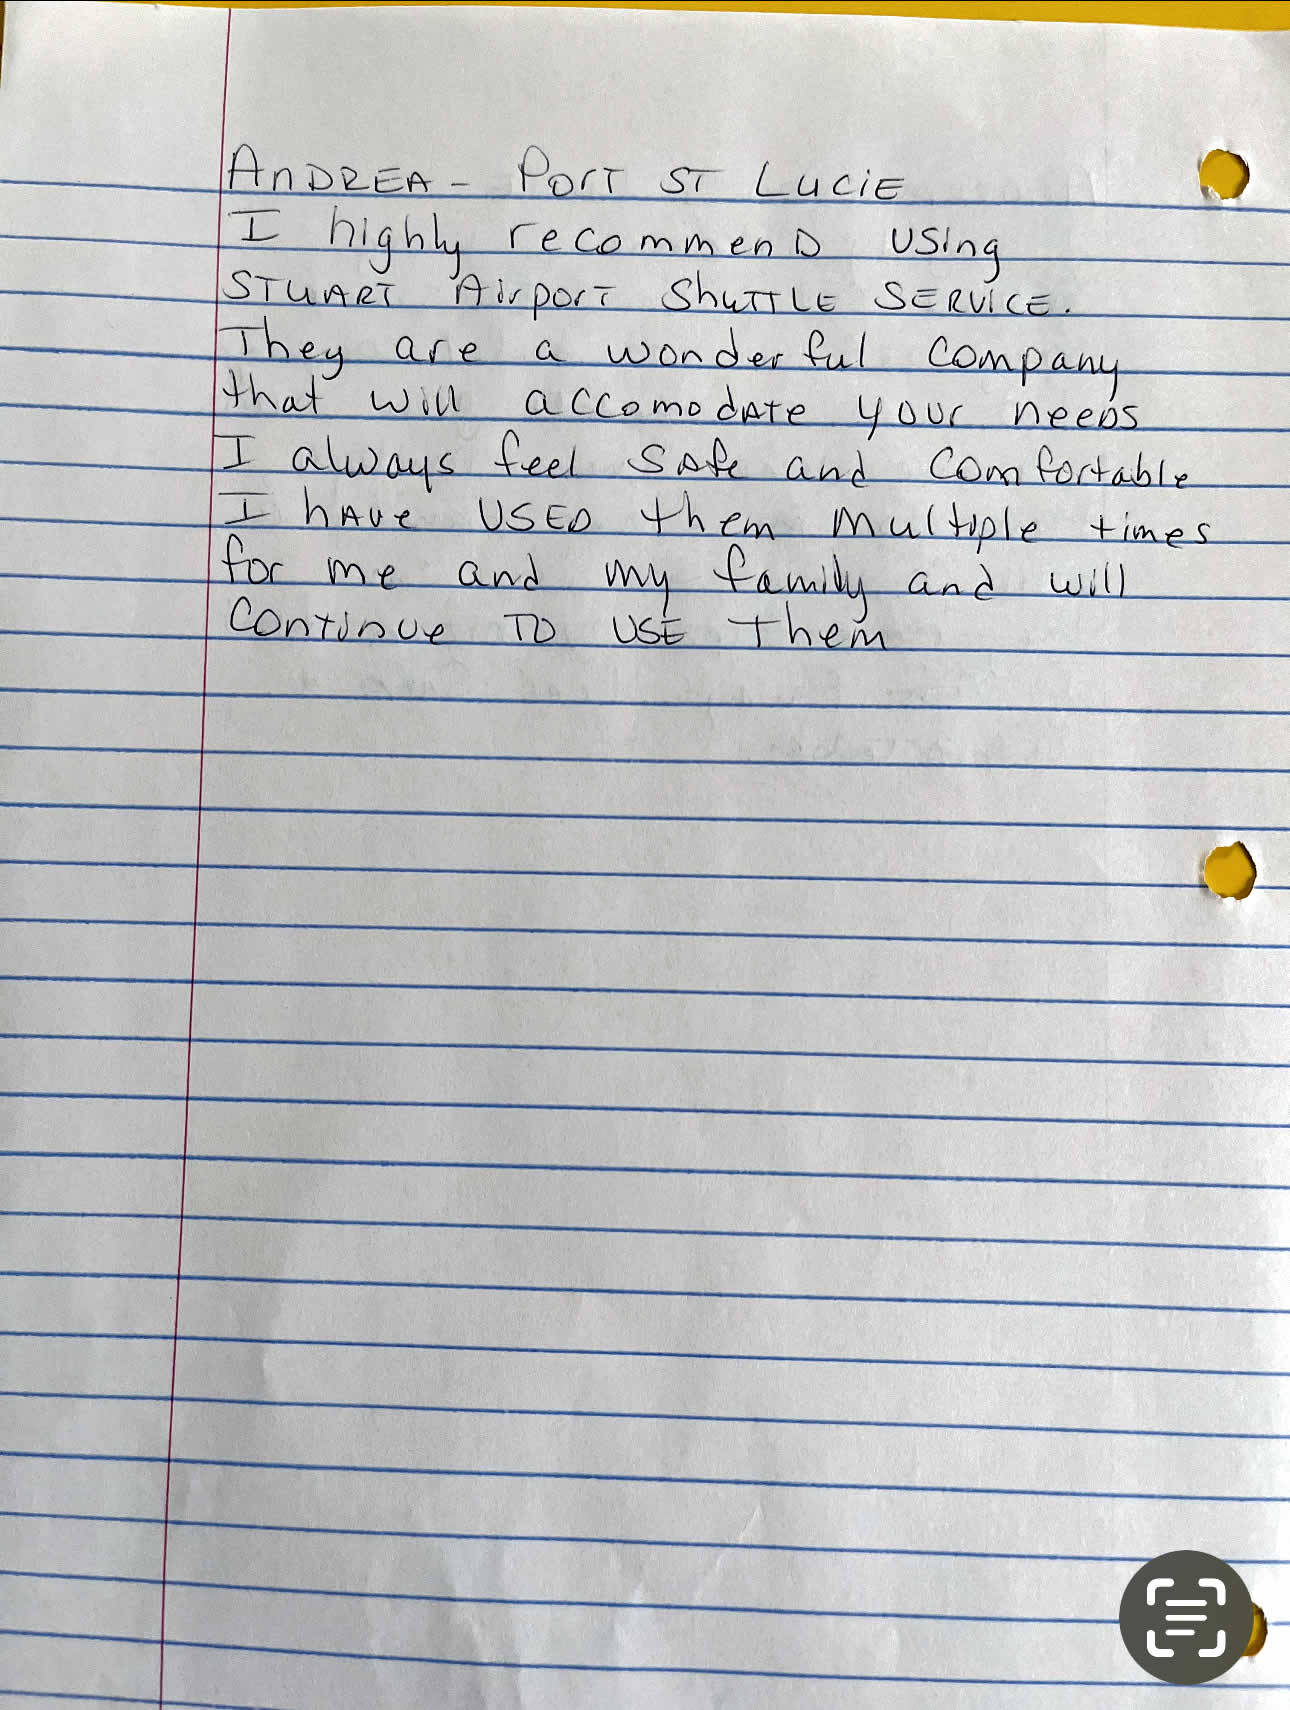 ANDREA - PORT ST LUCIE
I highly recommend using
STUART Airport Shuttle SERVICE.
They are a wonderful company
that will accomodate your needs
I always feel safe and comfortable
I have USED them multiple times
for me and my family and will
continue TO USE them